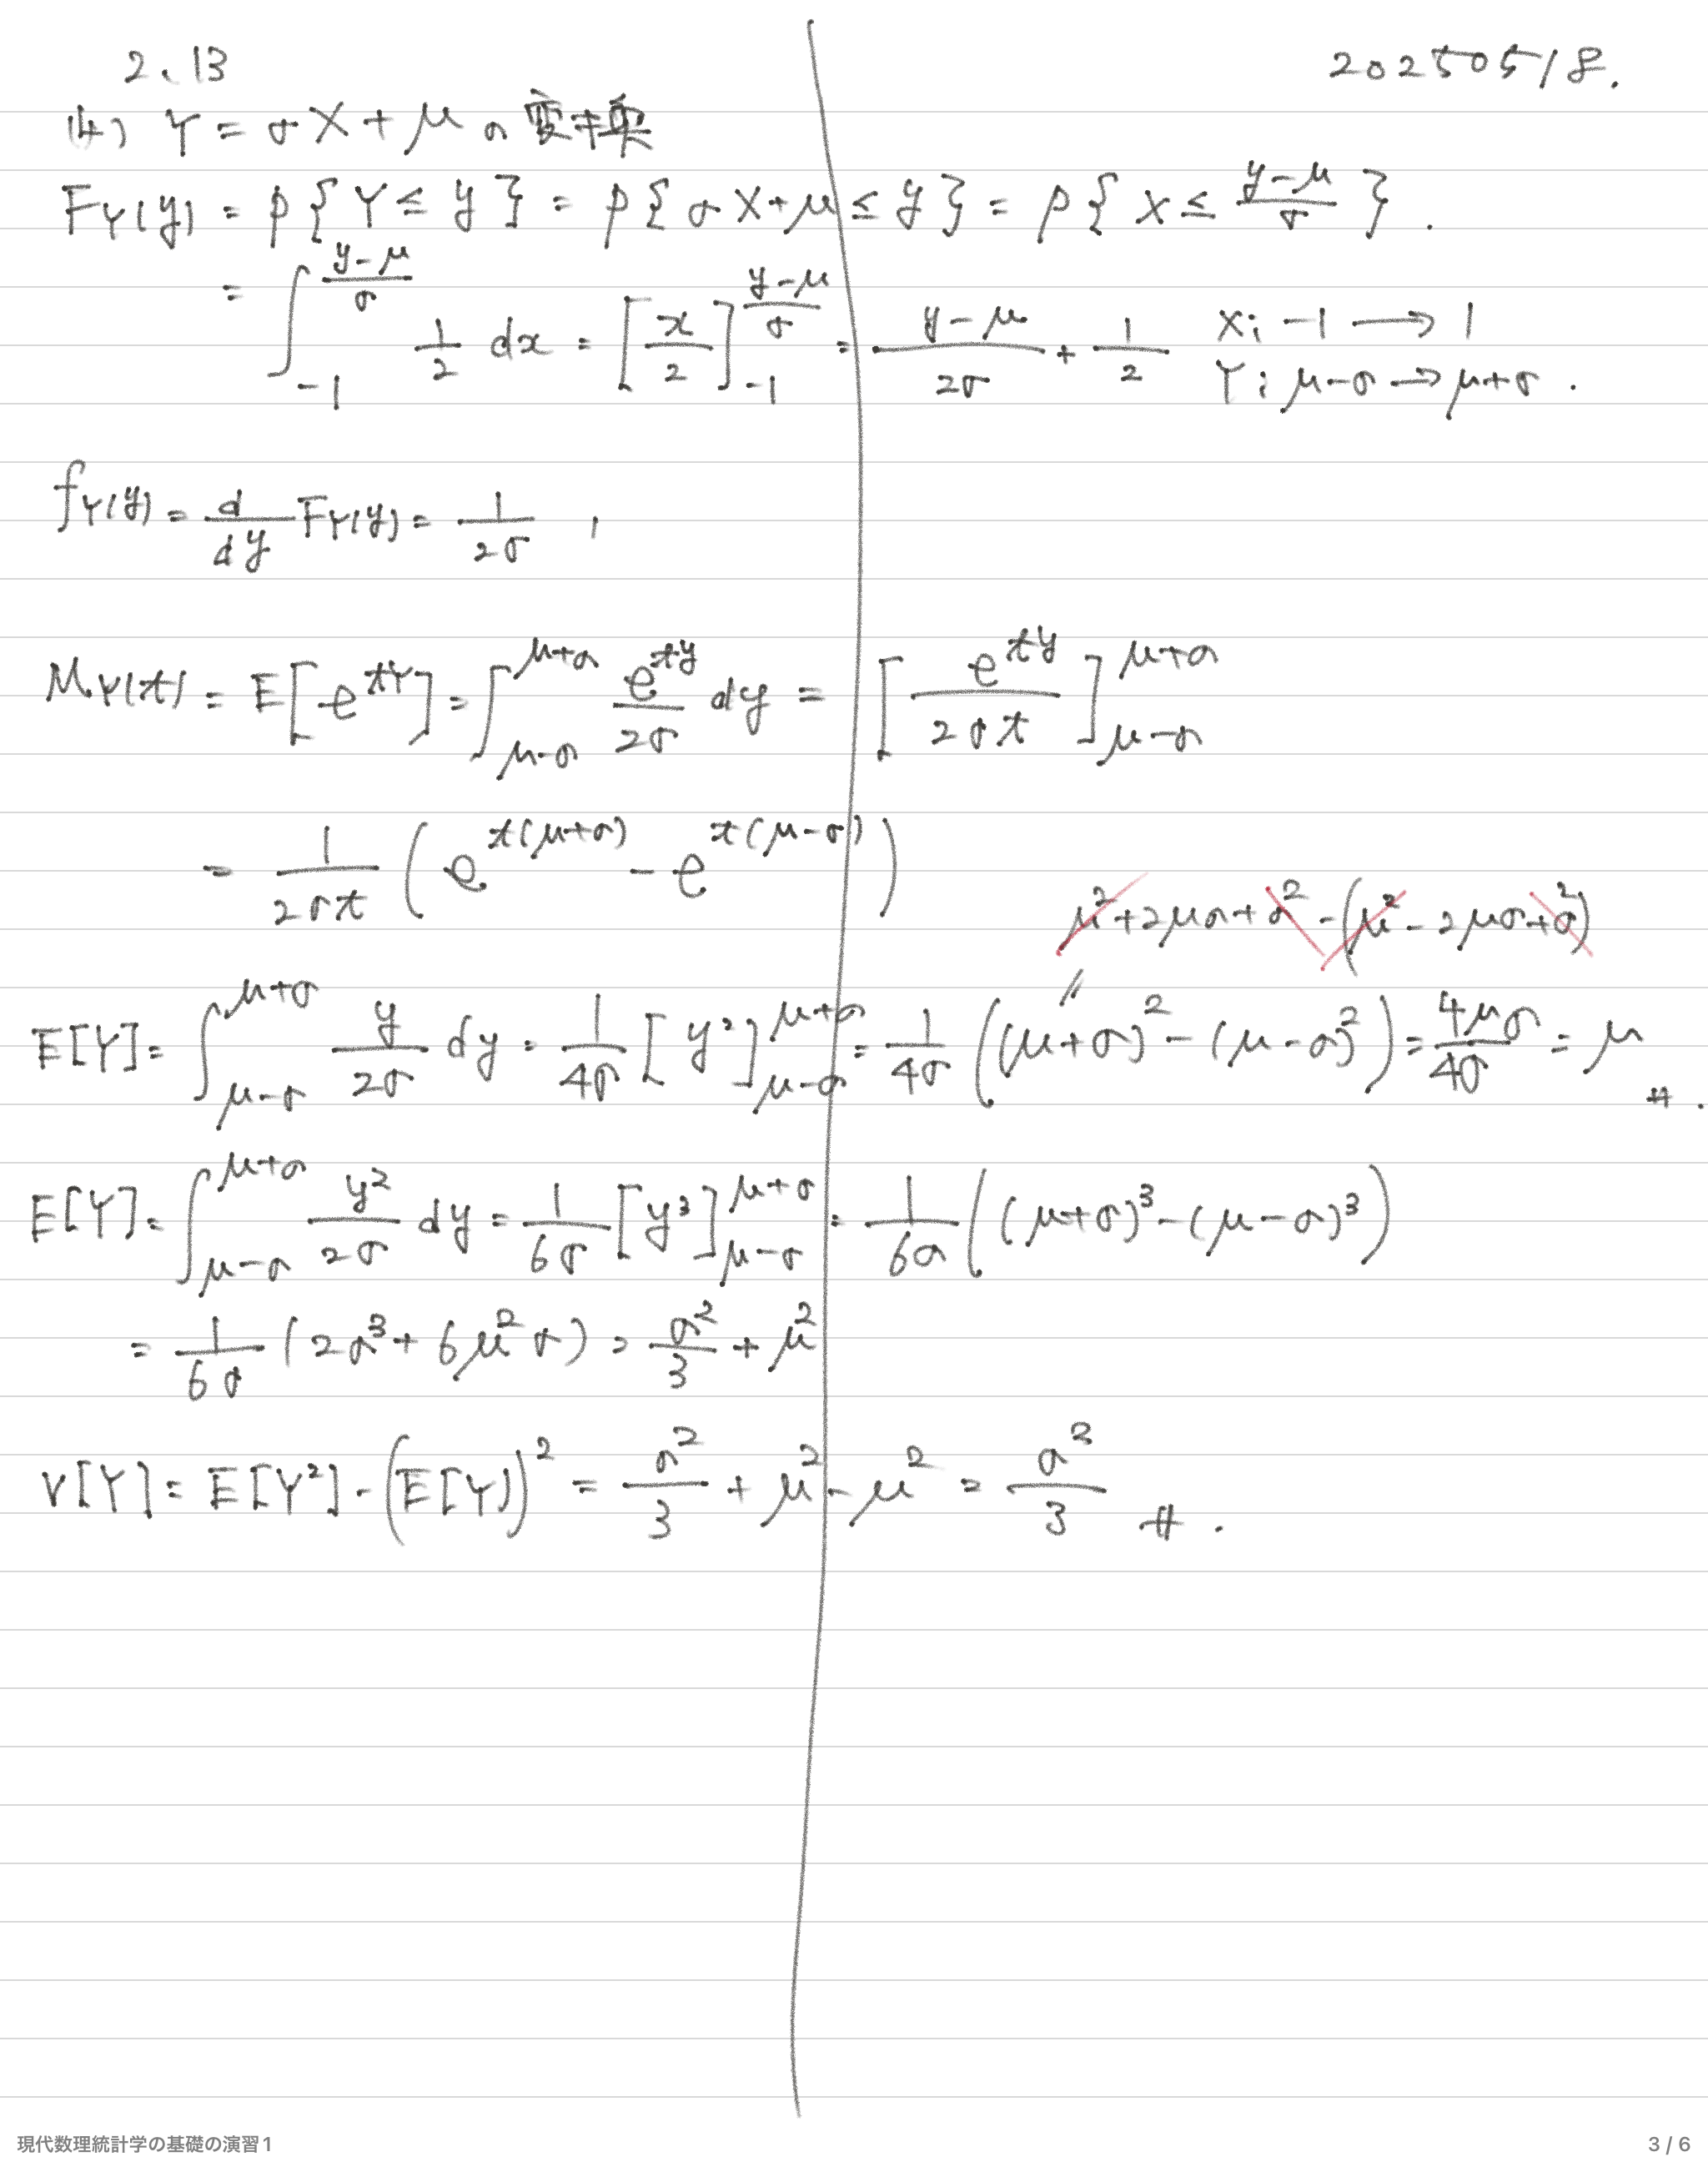 2.13 20250518.
(4) Y = σX + μ の変換
F_Y(y) = P{Y ≤ y} = P{σX+μ ≤ y} = P{X ≤ \frac{y-μ}{σ}}.
= ∫_{-1}^{\frac{y-μ}{σ}} \frac{1}{2} dx = [\frac{x}{2}]_{-1}^{\frac{y-μ}{σ}} = \frac{y-μ}{2σ} + \frac{1}{2} X; -1 → 1
Y; μ-σ → μ+σ.
f_Y(y) = \frac{d}{dy} F_Y(y) = \frac{1}{2σ} ,
M_Y(t) = E[e^{tY}] = ∫_{μ-σ}^{μ+σ} \frac{e^{ty}}{2σ} dy = [\frac{e^{ty}}{2σt}]_{μ-σ}^{μ+σ}
= \frac{1}{2σt} (e^{t(μ+σ)} - e^{t(μ-σ)})
μ²+2μσ+σ²-(μ²-2μσ+σ²)
E[Y] = ∫_{μ-σ}^{μ+σ} \frac{y}{2σ} dy = \frac{1}{4σ} [y²]_{μ-σ}^{μ+σ} = \frac{1}{4σ} ((μ+σ)² - (μ-σ)²) = \frac{4μσ}{4σ} = μ #.
E[Y] = ∫_{μ-σ}^{μ+σ} \frac{y²}{2σ} dy = \frac{1}{6σ} [y³]_{μ-σ}^{μ+σ} = \frac{1}{6σ} ((μ+σ)³ - (μ-σ)³)
= \frac{1}{6σ} (2σ³ + 6μ²σ) = \frac{σ²}{3} + μ²
V[Y] = E[Y²] - (E[Y])² = \frac{σ²}{3} + μ² - μ² = \frac{σ²}{3} #.
現代数理統計学の基礎の演習1 3 / 6